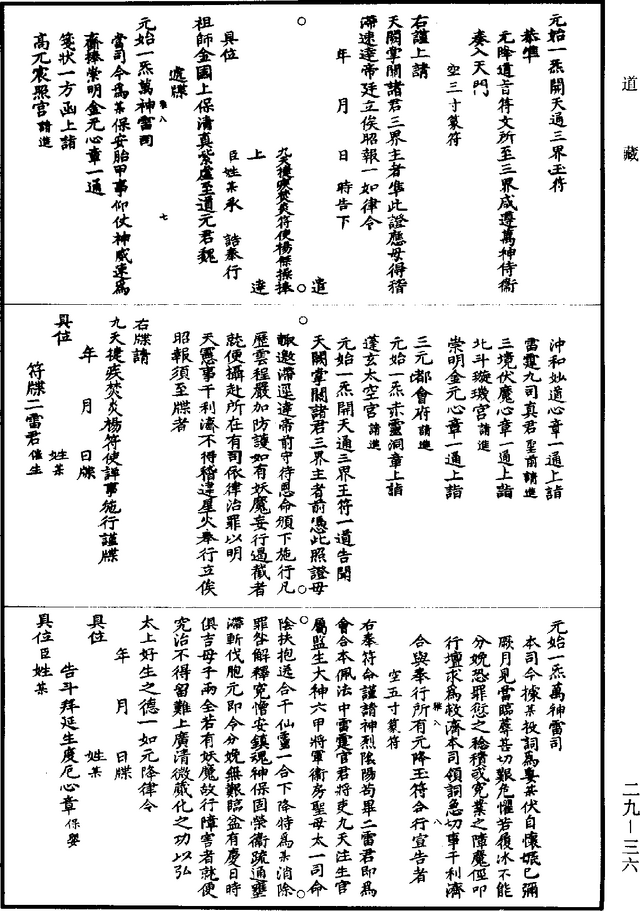 道藏
元始一炁開天通三界玉符
恭準
元降遺言符文所至三界咸遵萬神侍衛
奏入天門
空三寸篆符
右謹上請
天闕掌關諸君三界主者準此證應毋得稽
滯速達帝廷立俟昭報一如律令
年 月 日 時告下
九天捷疾焚炎符使楊傑操捧 遣
上達
具位 臣姓某承 誥奉行
祖師金闕上保清真紫虛至道元君魏
遞牒
雅八 七
元始一炁萬神雷司
當司今為某保安胎甲事仰仗神威速為
齋捧崇明金元心章一通
箋狀一方函上詣
高元宸照宮 請進
沖和妙道心章一通上詣
雷霆九司真君 聖前請進
三境伏魔心章一通上詣
北斗璇璣宮 請進
崇明金元心章一通上詣
三元都會府 請進
元始一炁赤靈洞章上詣
蓬玄太空官 請進
元始一炁開天通三界玉符一道告聞
天闕掌關諸君三界主者前憑此照證毋
輒邀滯逕達帝前守待恩命頒下施行凡
歷雲程嚴加防護如有妖魔妄行遏截者
就便攝赴所在有司依律治罪以明
天憲事干利濟不得稽違星火奉行立俟
昭報須至牒者
右牒請
九天捷疾焚炎楊符使詳事施行謹牒
年 月 日牒
具位 姓某
符牒二雷君 催生
元始一炁萬神雷司
本司今據某投詞為妻某伏自懷娠已彌
厥月見當臨蓐甚切艱危懼若履冰不能
分娩恐罪愆之稔積或冤業之障魔徑叩
行壇求為救濟本司領詞急切事干利濟
雅八 八
合與奉行所有元降玉符合行宣告者
空五寸篆符
右奉符命謹請神烈陰陽苟畢二雷君即為
會合本佩法中雷霆官君將吏九天注生官
屬監生大神六甲將軍衛房聖母太一司命
陰扶抱送合干仙靈一合下降特為某消除
罪咎解釋冤憎安鎮魂神保固榮衛疏通壅
滯斬伐胞元即令分娩無艱臨盆有慶日時
俱吉母子兩全若有妖魔故行障害者就便
究治不得留難上廣清微贓化之功以弘
太上好生之德一如元降律令
年 月 日牒
具位 姓某
告斗拜延生度厄心章 保嬰
具位臣姓某
二九—三六